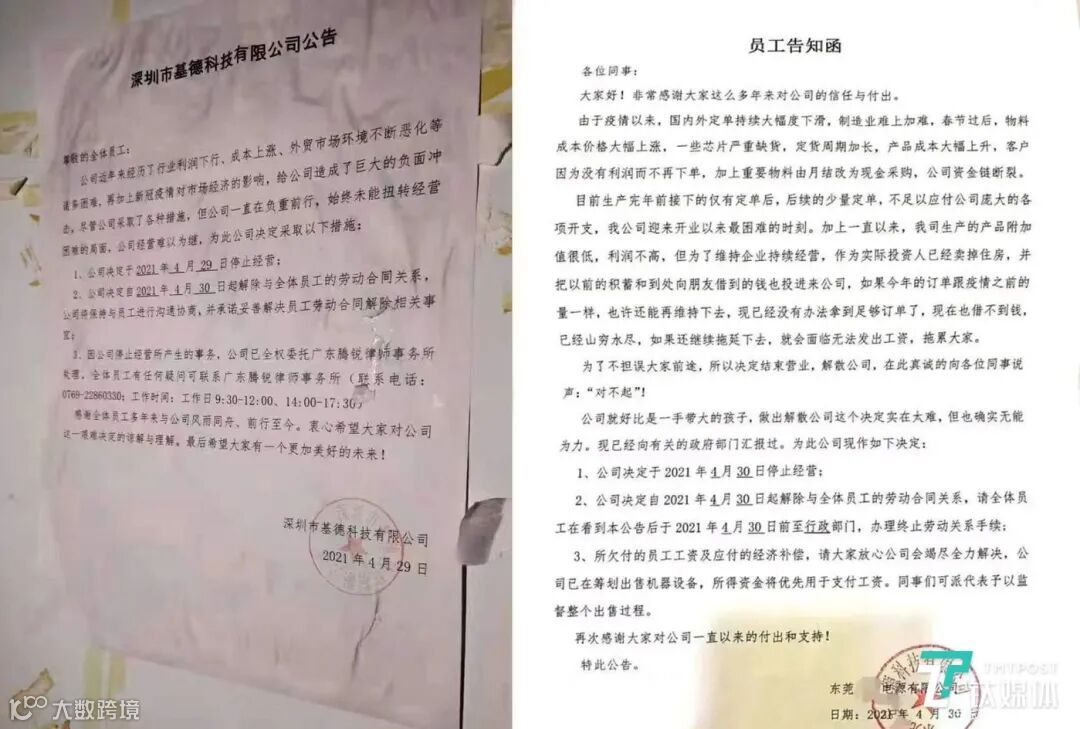 深圳市基德科技有限公司公告
尊敬的全体员工:
公司近年来经历了行业利润下行、成本上涨、外贸市场环境不断恶化等
诸多困难,再加上新冠疫情对市场经济的影响,给公司造成了巨大的负面冲
击。尽管公司采取了各种措施,但公司一直在负重前行,始终未能扭转经营
困难的局面,公司经营难以为继,为此公司决定采取以下措施:
1、公司决定于2021年4月29日停止经营;
2、公司决定自2021年4月30日起解除与全体员工的劳动合同关系,
公司将保持与员工进行沟通协商,并承诺妥善解决员工劳动合同解除相关事
宜;
3、因公司停止经营所产生的事务,公司已全权委托广东腾锐律师事务所
处理。全体员工有任何疑问可联系广东腾锐律师事务所(联系电话:
0769-22860330;工作时间:工作日9:30-12:00、14:00-17:30)
感谢全体员工多年来与公司风雨同舟、前行至今。衷心希望大家对公司
这一艰难决定的谅解与理解。最后希望大家有一个更加美好的未来!
深圳市基德科技有限公司
2021年4月29日
大数跨境
员工告知函
各位同事:
大家好!非常感谢大家这么多年来对公司的信任与付出。
由于疫情以来,国内外定单持续大幅度下滑,制造业难上加难,春节过后,物料
成本价格大幅上涨,一些芯片严重缺货,定货周期加长,产品成本大幅上升,客户
因为没有利润而不再下单,加上重要物料由月结改为现金采购,公司资金链断裂。
目前生产完年前接下的仅有定单后,后续的少量定单,不足以应付公司庞大的各
项开支,我公司迎来开业以来最困难的时刻。加上一直以来,我司生产的产品附加
值很低,利润不高,但为了维持企业持续经营,作为实际投资人已经卖掉住房,并
把以前的积蓄和到处向朋友借到的钱也投进来公司,如果今年的订单跟疫情之前的
量一样,也许还能再维持下去,现已经没有办法拿到足够订单了,现在也借不到钱,
已经山穷水尽,如果还继续拖延下去,就会面临无法发出工资,拖累大家。
为了不担误大家前途,所以决定结束营业,解散公司,在此真诚的向各位同事说
声:“对不起”!
公司就好比是一手带大的孩子,做出解散公司这个决定实在太难,但也确实无能
为力。现已经向有关的政府部门汇报过。为此公司现作如下决定:
1、公司决定于2021年4月30日停止经营;
2、公司决定自2021年4月30日起解除与全体员工的劳动合同关系,请全体员
工在看到本公告后于2021年4月30日前至行政部门,办理终止劳动关系手续;
3、所欠付的员工工资及应付的经济补偿,请大家放心公司会竭尽全力解决,公
司已在筹划出售机器设备,所得资金将优先用于支付工资。同事们可派代表予以监
督整个出售过程。
再次感谢大家对公司一直以来的付出和支持!
特此公告。
东莞 电源有限公司
日期:2021年4月30日
TMTPOST
钛媒体